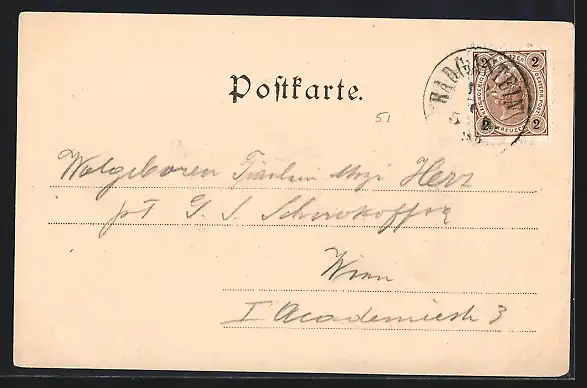 Postkarte.
BADGASTEIN
2 2
2 2
KREUZER
51
Wolgeboren Fräulein Mizi Herz
pt G. S.
Wien
I Academiestr 3